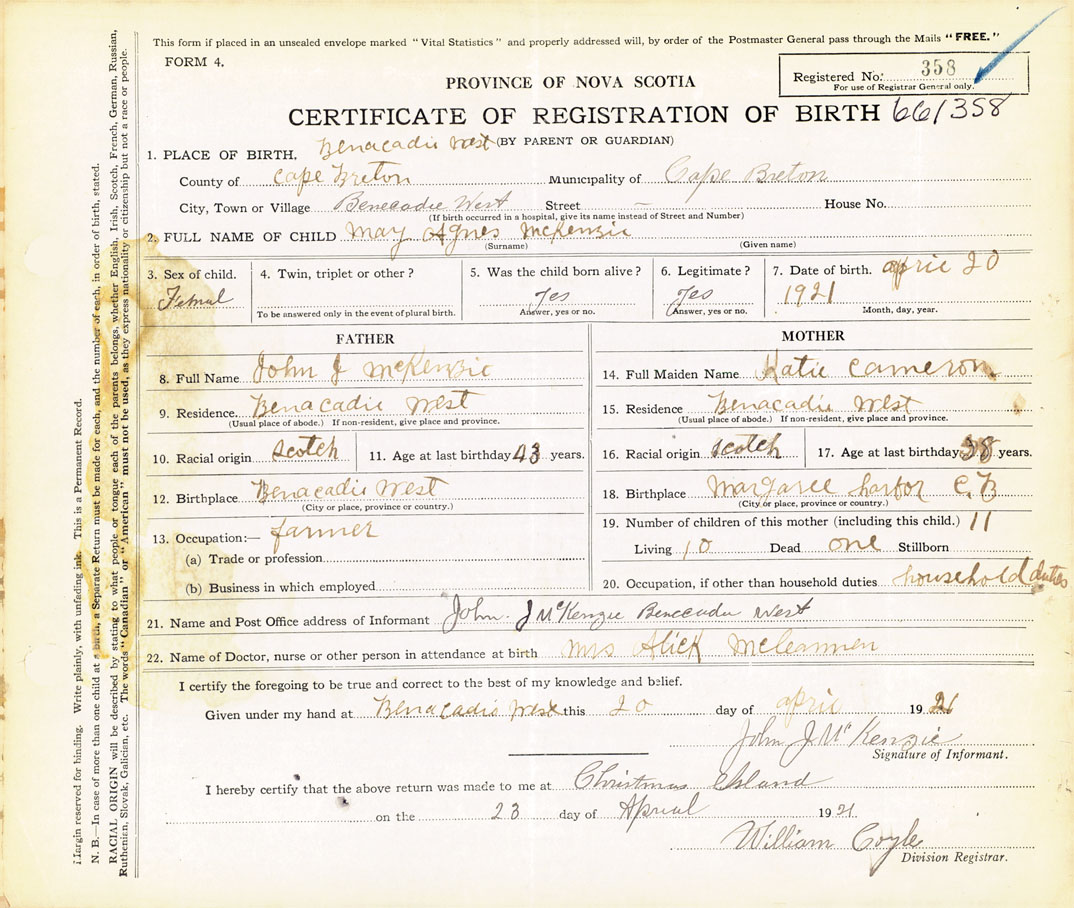 This form if placed in an unsealed envelope marked "Vital Statistics" and properly addressed will, by order of the Postmaster General pass through the Mails "FREE."
FORM 4.
Registered No. 358
For use of Registrar General only.
PROVINCE OF NOVA SCOTIA
CERTIFICATE OF REGISTRATION OF BIRTH 66/358
(BY PARENT OR GUARDIAN)
1. PLACE OF BIRTH, Benacadie West
County of Cape Breton Municipality of Cape Breton
City, Town or Village Benecadie West Street — House No.
(If birth occurred in a hospital, give its name instead of Street and Number)
2. FULL NAME OF CHILD May Agnes McKenzie
(Surname) (Given name)
3. Sex of child. 4. Twin, triplet or other? 5. Was the child born alive? 6. Legitimate? 7. Date of birth. april 20
Femal Yes Yes 1921
To be answered only in the event of plural birth. Answer, yes or no. Answer, yes or no. Month, day, year.
FATHER
8. Full Name John J McKenzie
9. Residence. Benacadie West
(Usual place of abode.) If non-resident, give place and province.
10. Racial origin Scotch 11. Age at last birthday 43 years.
12. Birthplace Benacadie West
(City or place, province or country.)
13. Occupation:— farmer
(a) Trade or profession
(b) Business in which employed
MOTHER
14. Full Maiden Name Katie Cameron
15. Residence Benacadie West
(Usual place of abode.) If non-resident, give place and province.
16. Racial origin Scotch 17. Age at last birthday 38 years.
18. Birthplace Margaree harbor C.B
(City or place, province or country.)
19. Number of children of this mother (including this child.) 11
Living 10 Dead one Stillborn
20. Occupation, if other than household duties household duties
21. Name and Post Office address of Informant John J McKenzie Benecadie West
22. Name of Doctor, nurse or other person in attendance at birth Mrs Alick
I certify the foregoing to be true and correct to the best of my knowledge and belief.
Given under my hand at Benacadie West this 20 day of april 1921
John J McKenzie
Signature of Informant.
I hereby certify that the above return was made to me at Christmas Island
on the 23 day of Aprial 1921
William Coyle
Division Registrar.
Margin reserved for binding. Write plainly, with unfading ink. This is a Permanent Record.
N. B.—In case of more than one child at a birth, a Separate Return must be made for each, and the number of each, in order of birth, stated.
RACIAL ORIGIN will be described by stating to what people or tongue each of the parents belongs, whether English, Irish, Scotch, French, German, Russian,
Ruthenian, Slovak, Galician, etc. The words "Canadian" or "American" must not be used, as they express nationality or citizenship but not a race or people.